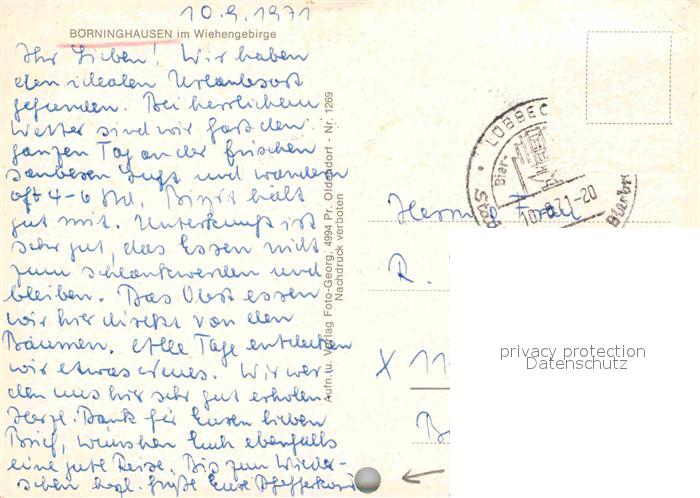 10.9.1971
BÖRNINGHAUSEN im Wiehengebirge
Ihr Lieben! Wir haben
den idealen Urlaubsort
gefunden. Bei herrlichem
Wetter sind wir fast den
ganzen Tag an der frischen
sauberen Luft und wandern
oft 4-6 Std. Birgit hält
gut mit. Unterkunft ist
sehr gut, das Essen nicht
zum schlankwerden und
bleiben. Das Obst essen
wir hier direkt von den
Bäumen. Alle Tage entdecken
wir etwas neues. Wir wer-
den uns hier sehr gut erholen.
Herzl. Dank für Euren lieben
Brief, wünschen Euch ebenfalls
eine gute Reise. Bis zum Wieder-
sehen herzl. Grüße Eure
Aufn. u. Verlag Foto-Georg, 4994 Pr. Oldendorf - Nr. 1269
Nachdruck verboten
LÜBBEC
Bier-
10.-9.71-20
Frau
R.
X 11
B
privacy protection
Datenschutz